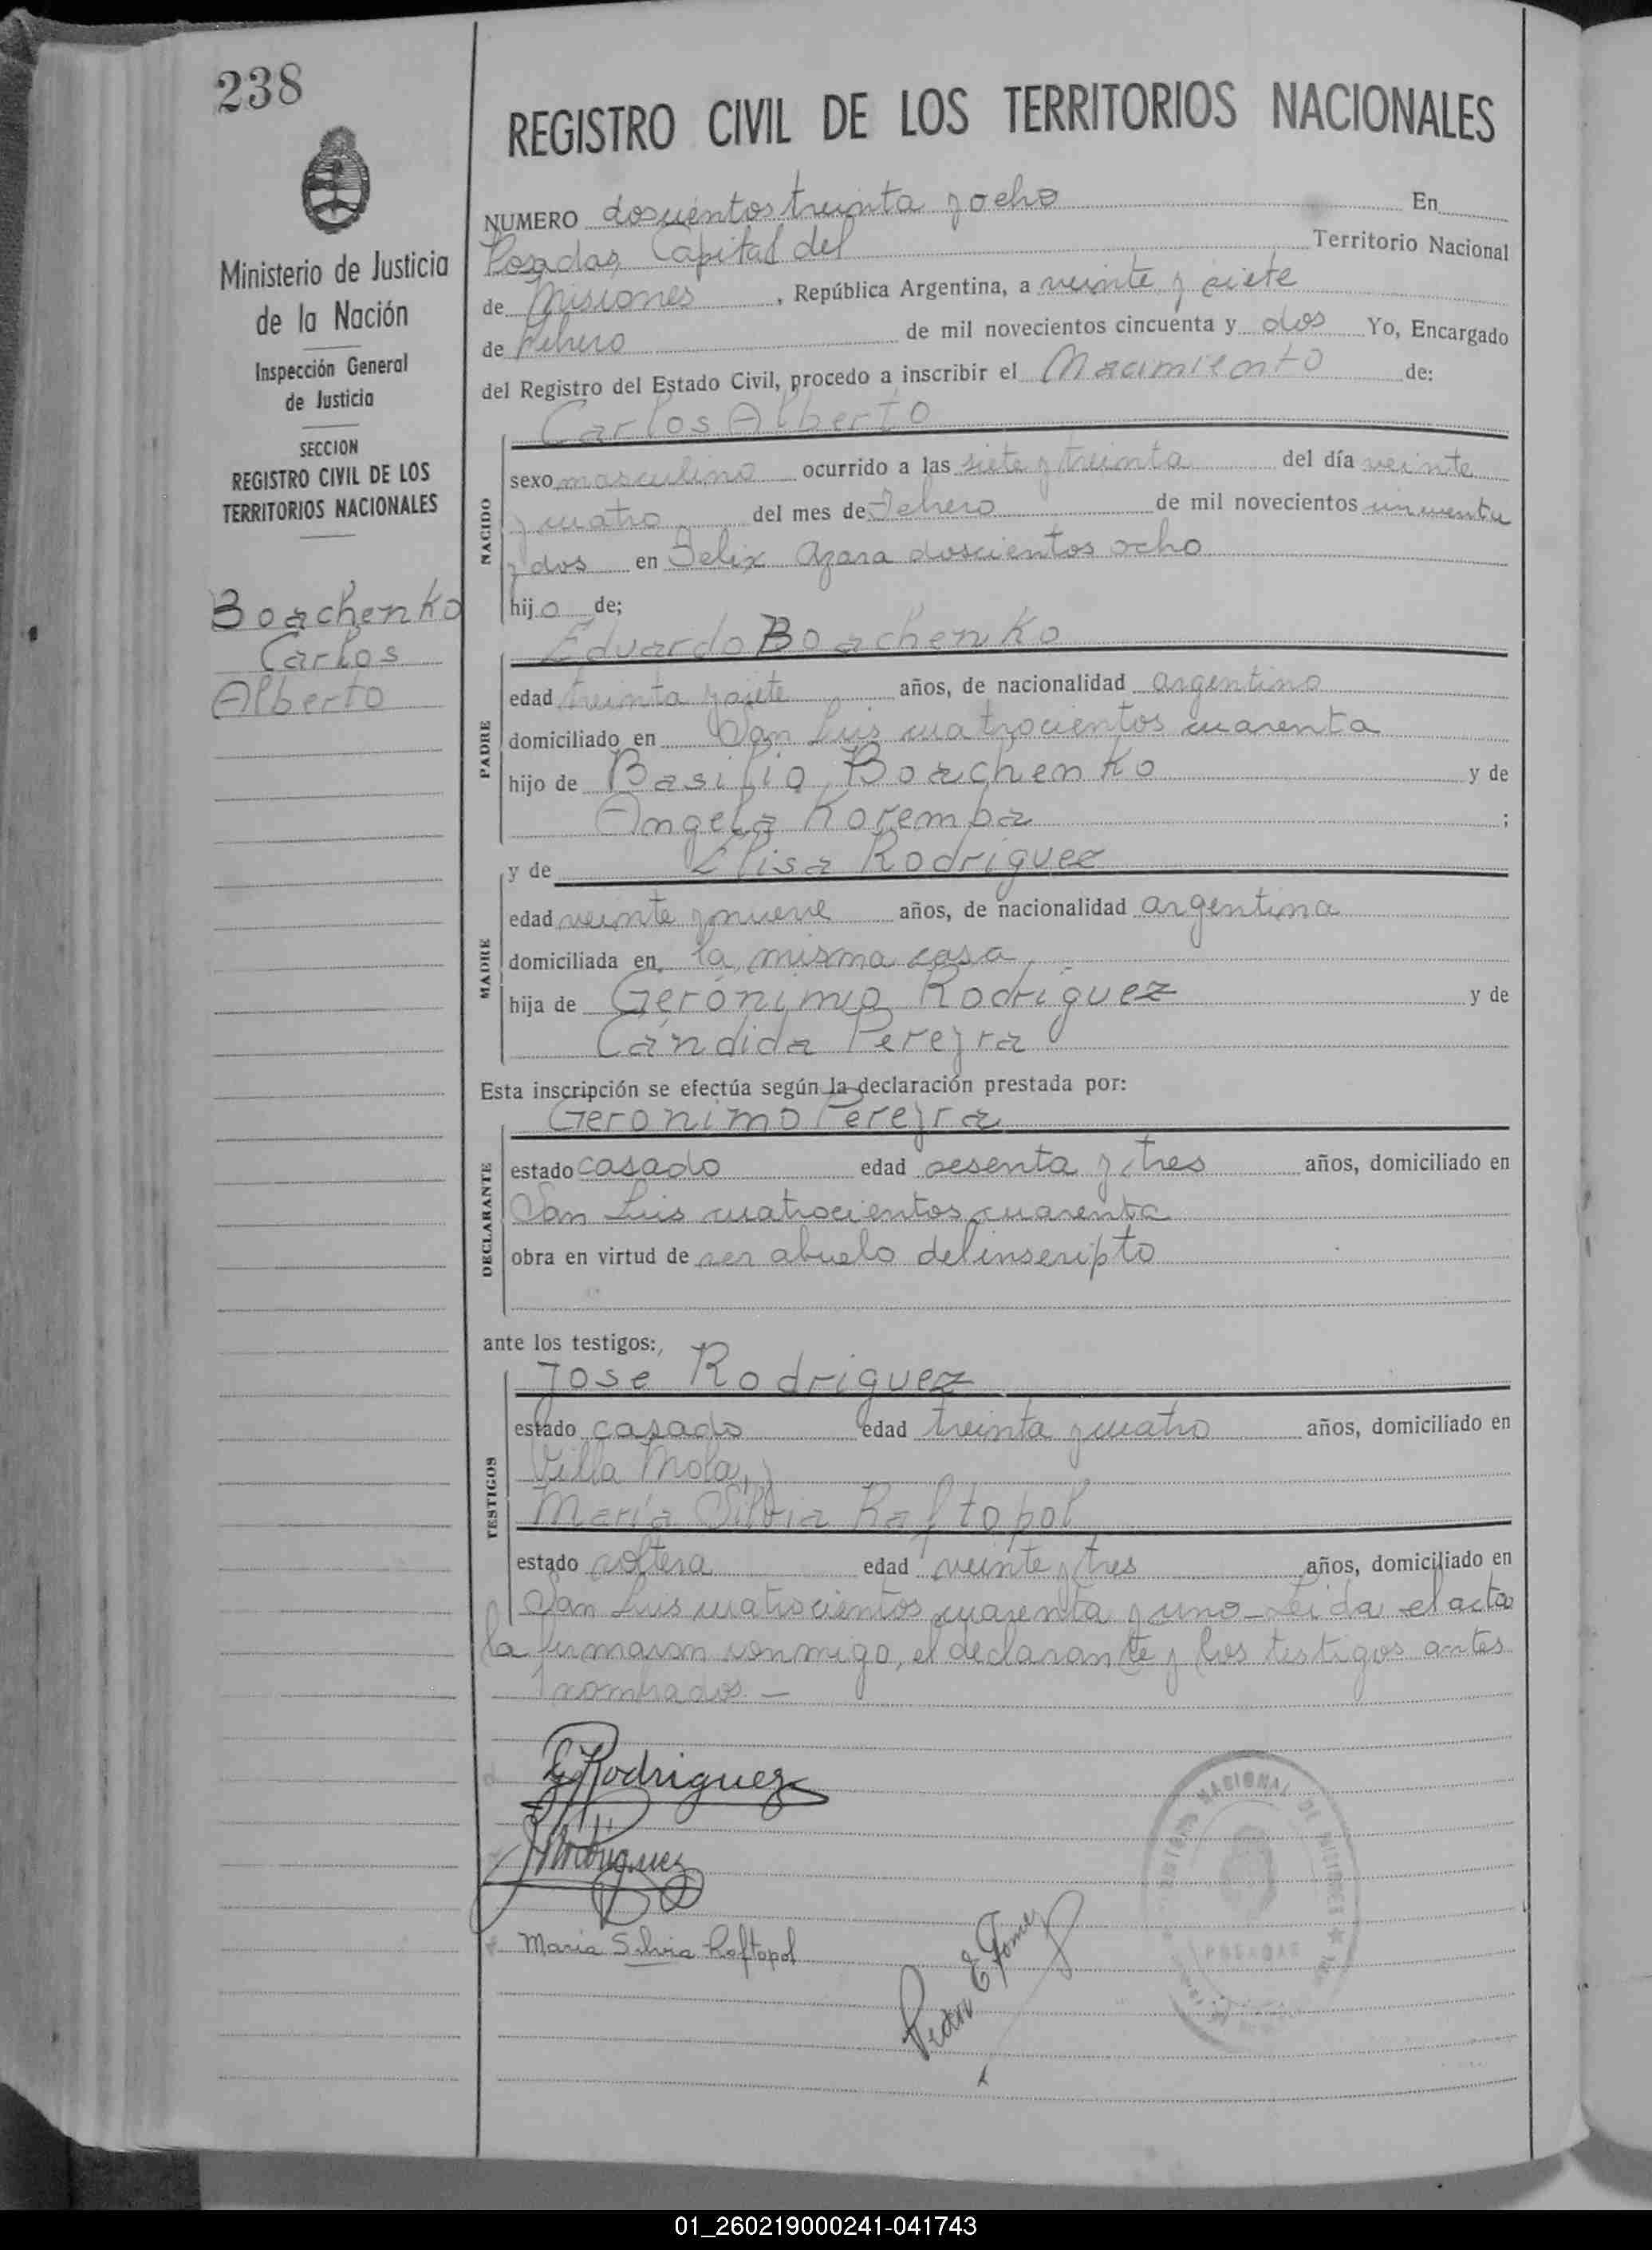 238
REGISTRO CIVIL DE LOS TERRITORIOS NACIONALES
Ministerio de Justicia
de la Nación
Inspección General
de Justicia
SECCION
REGISTRO CIVIL DE LOS
TERRITORIOS NACIONALES
Boachenko
Carlos
Alberto
NUMERO doscientos treinta y ocho En
Posadas, Capital del Territorio Nacional
de Misiones, República Argentina, a veinte y siete
de Febrero de mil novecientos cincuenta y dos Yo, Encargado
del Registro del Estado Civil, procedo a inscribir el Nacimiento de:
Carlos Alberto
NACIDO
sexo masculino ocurrido a las siete y treinta del día veinte
y cuatro del mes de Febrero de mil novecientos cincuenta
y dos en Felix Azara doscientos ocho
hijo de;
Eduardo Boachenko
PADRE
edad treinta y siete años, de nacionalidad argentino
domiciliado en San Luis cuatrocientos cuarenta
hijo de Basilio Boachenko y de
Angela Koremba ;
y de Elisa Rodriguez
MADRE
edad veinte y nueve años, de nacionalidad argentina
domiciliada en la misma casa
hija de Gerónimo Rodriguez y de
Cándida Pereyra
Esta inscripción se efectúa según la declaración prestada por:
Geronimo Pereyra
DECLARANTE
estado casado edad sesenta y tres años, domiciliado en
San Luis cuatrocientos cuarenta
obra en virtud de ser abuelo del inscripto
ante los testigos:
Jose Rodriguez
TESTIGOS
estado casado edad treinta y cuatro años, domiciliado en
Villa Mola, y
María Silvia Raftopol
estado soltera edad veinte y tres años, domiciliado en
San Luis cuatrocientos cuarenta y uno - Leida el acta
la firmaron conmigo, el declarante y los testigos antes
nombrados. -
G Rodriguez
J Rodriguez
Maria Silvia Raftopol
E. Gomez
POSADAS
01_260219000241-041743